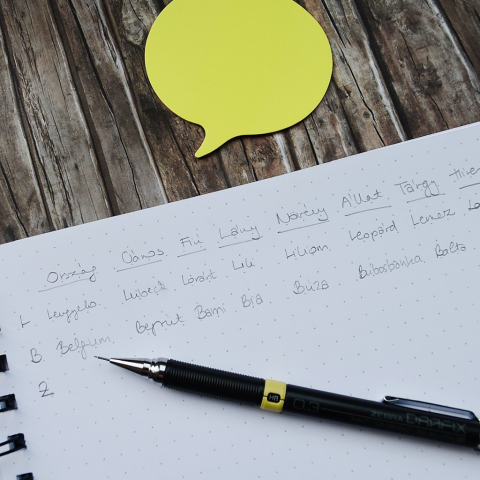 Ország Város Fiú Lány Növény Állat Tárgy Híres
L Lengyelo. Lübeck Lóránt Lili Liliom Leopárd Lemez
B Belgium Bejrut Barni Bia Búza Bibosbanka Balta
Z
HB 0.3 ZEBRA DRAFIX